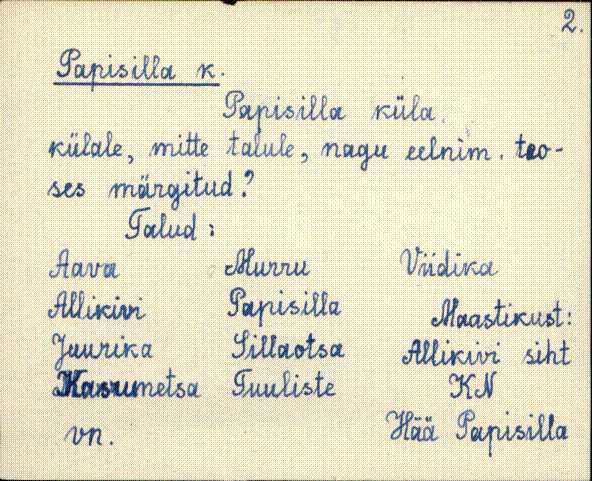 2.
Papisilla k.
Papisilla küla.
külale, mitte talule, nagu eelnim. teo-
ses märgitud?
Talud:
Aava Murru Viidika
Allikivi Papisilla Maastikust:
Juurika Sillaotsa Allikivi siht
Kasumetsa Tuuliste KN
vn. Hää Papisilla